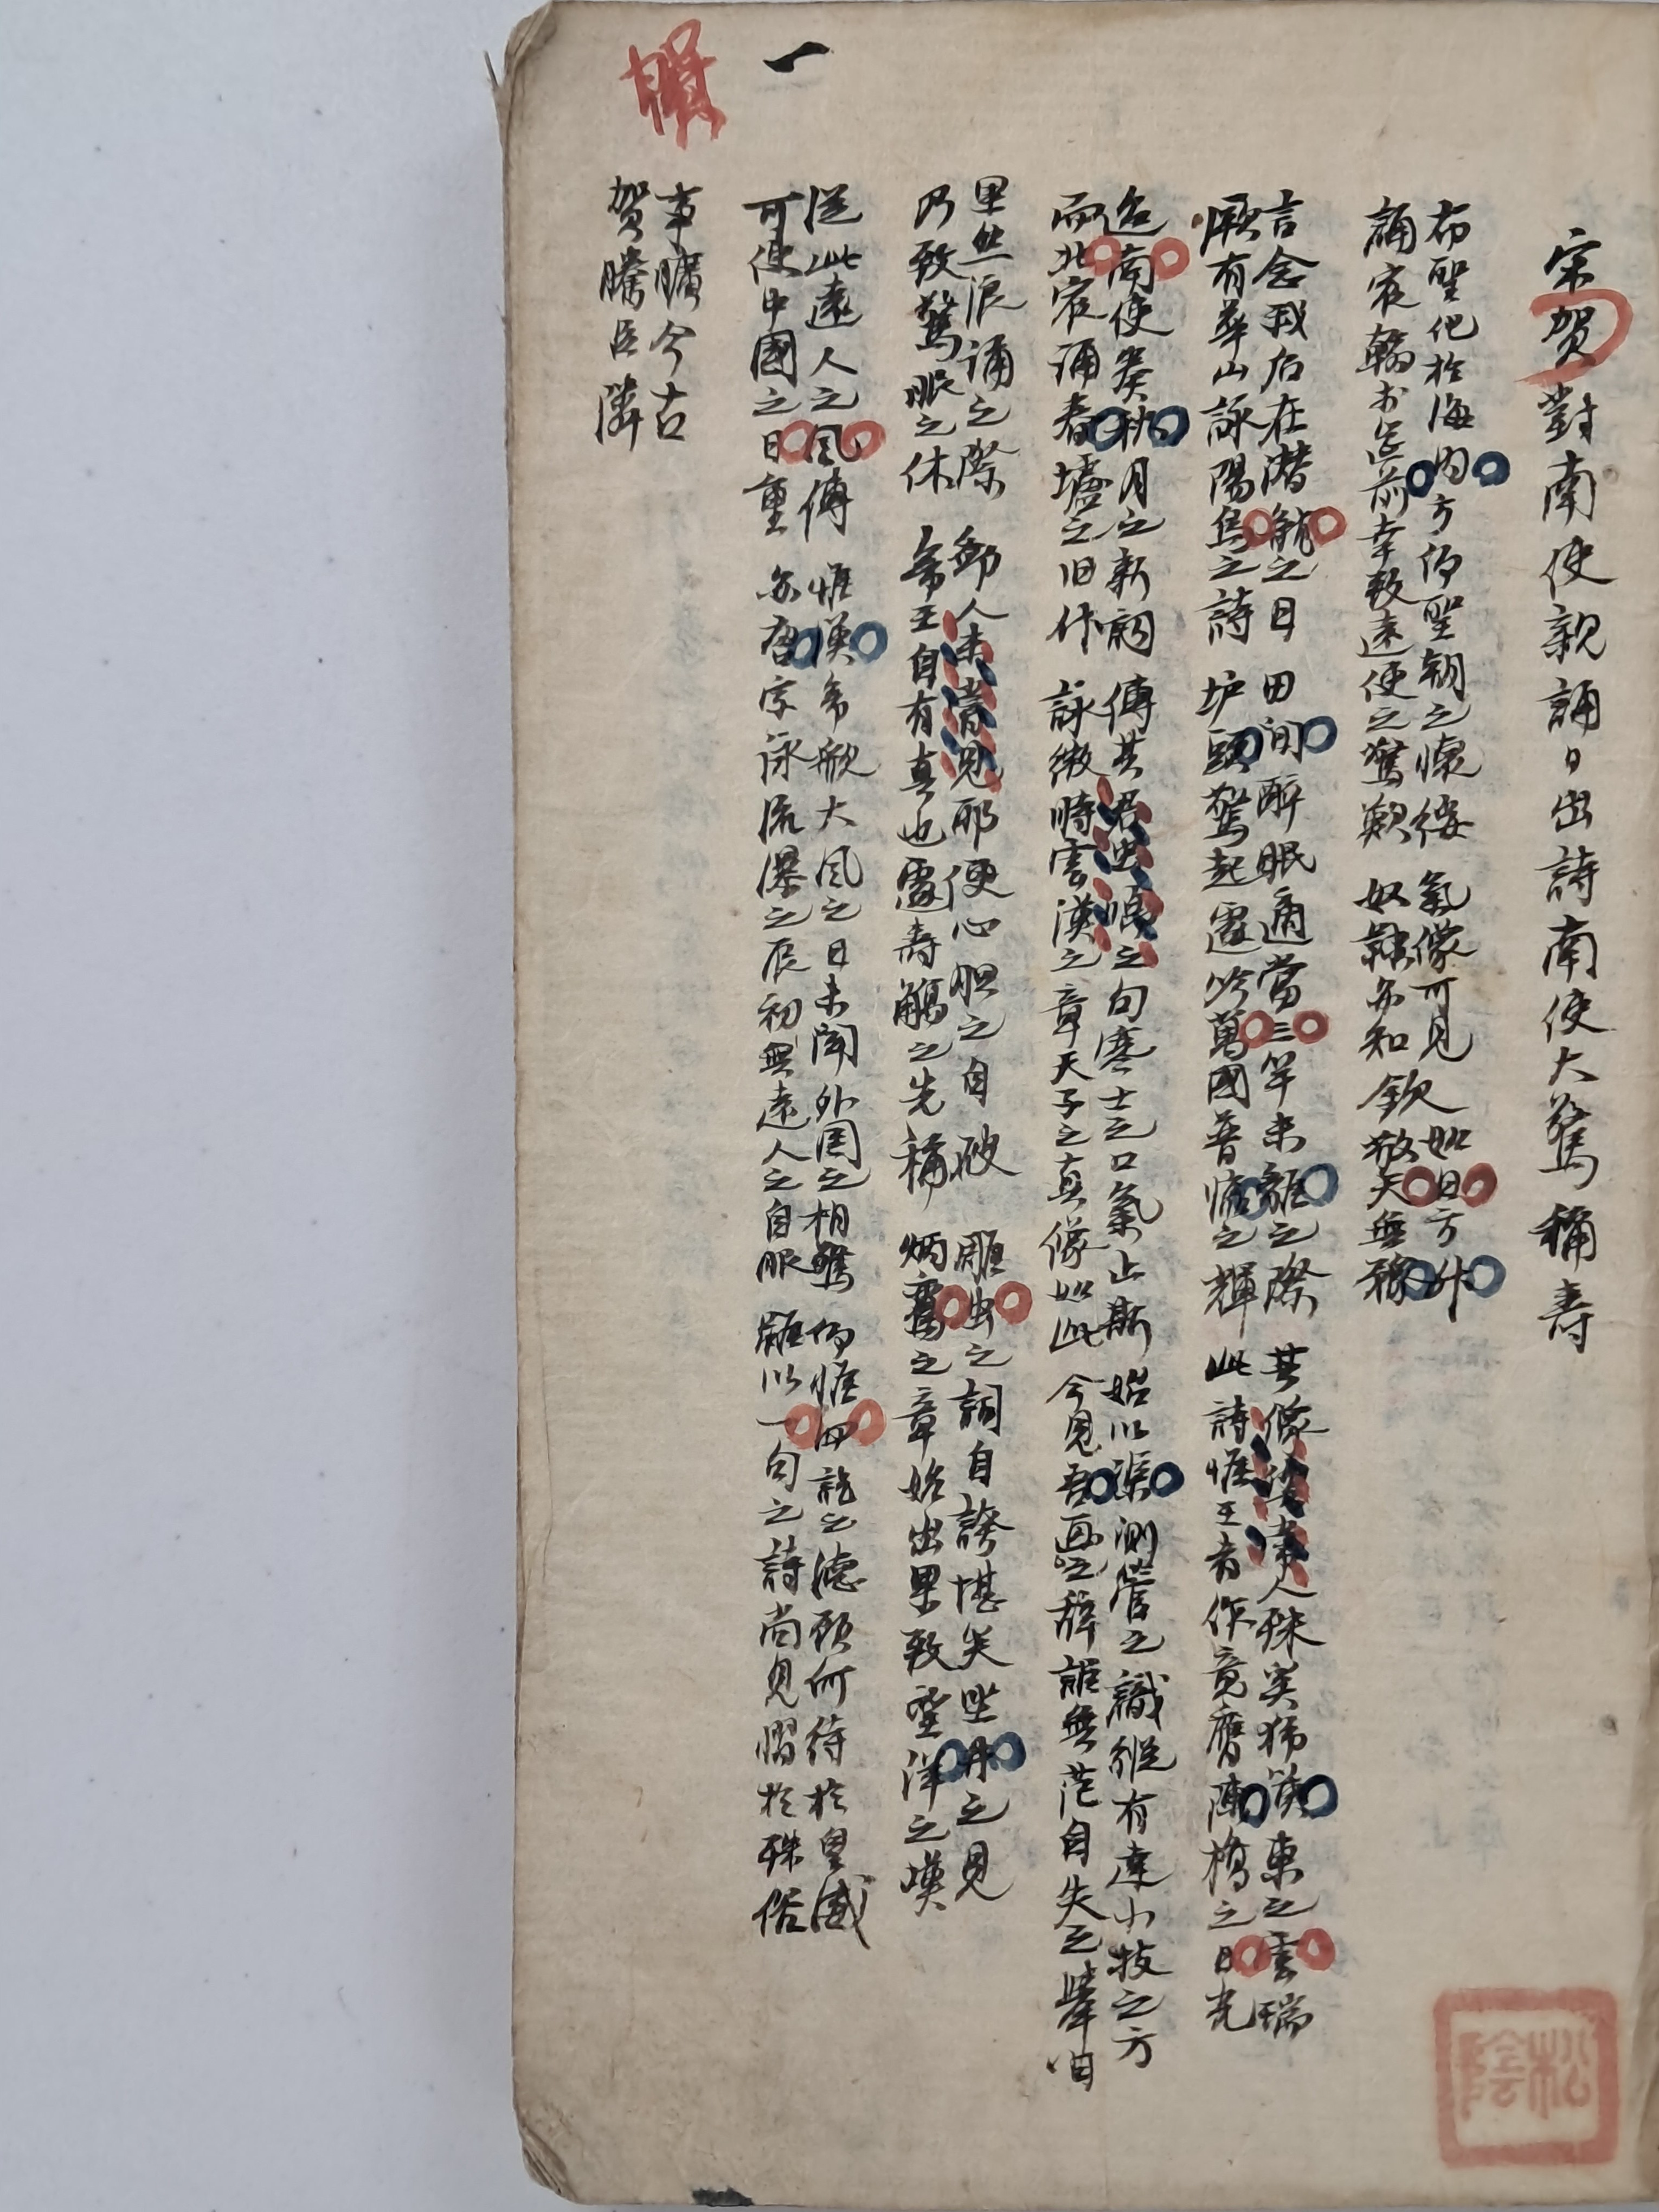 宋賀對南使親誦日出詩南使大驚稱壽
布聖化於海內方仰聖朝之懷綏 氣像可見 如日方升
誦宸翰於 前幸致遠使之驚歎 奴隸亦知 欽哉天無
言念我后在潛龍之日 田間醉眠適當三竿未離之際 其像 人殊異狮漢東之雲瑞
厥有華山詠陽烏之詩 垆頭驚起遑吟萬國普 之輝 此詩惟王者作竟膺陳橋之日光
迨南使奏秋月之新詞 傳其君 之句寒士之口氣止斯 始以 測管之識縱有達小技之方
而北宸誦春墟之旧什 詠微時雲漢之章天子之真像如此 今見吾 之辭誰無茫自失之擧自
里然浪誦之際 鄧人未嘗見耶便心胆之自破 雕虫之詞自誇堪笑坐井之見
乃致驚服之休 帝王自有真也遽壽觴之先稱 炳 之章始出果致望洋之嘆
從此遠人之風傳 惟漢帝歌大风之日未聞外国之相驚 仰惟四 之德顧何待於皇威
可使中國之日重 亦唐宗詠流瀑之辰初無遠人之自服 雖以一句之詩尚見慴於殊俗
事曠今古
賀騰臣隣
一
松陰